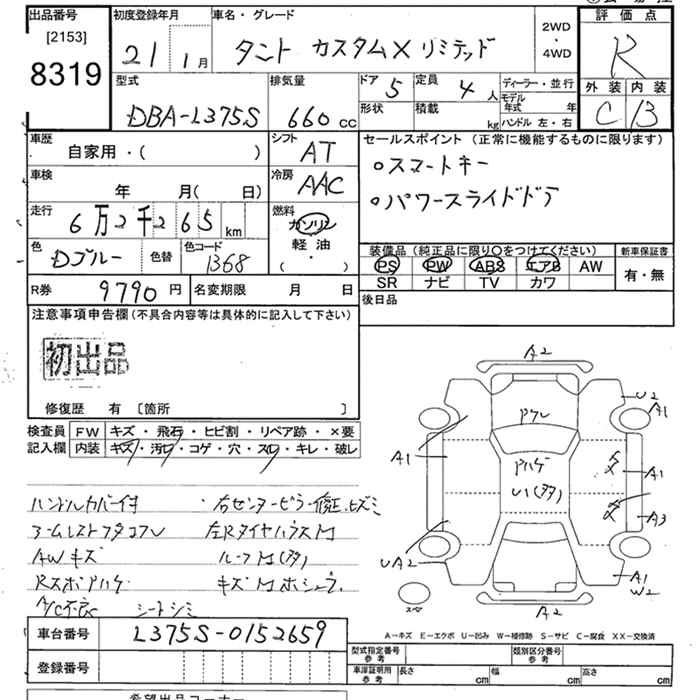 出品番号 初度登録年月 車名・グレード 評価点
[2153]
8319
21 1月 タント カスタムX リミテッド
2WD
・
4WD
R
型式 排気量 ドア 5 定員 4人 ディーラー・並行 外装 内装
DBA-L375S 660cc 形状 積載 kg モデル年式 年 C 13
ハンドル 左・右
車歴 自家用・( ) シフト AT セールスポイント (正常に機能するものに限ります)
車検 年 月( 日) 冷房 AAC ・スマートキー
・パワースライドドア
走行 6万2千265km 燃料 ガソリン
軽油
( ・ )
色 Dブルー 色替 色コード 1368
装備品 (純正品に限り〇をつけてください) 新車保証書
PS PW ABS エアB AW 有・無
SR ナビ TV カワ
R券 9790円 名変期限 月 日 後日品
注意事項申告欄 (不具合内容等は具体的に記入して下さい)
初出品
修復歴 有 [箇所 ]
検査員 FW キズ・飛石・ヒビ割・リペア跡・×要
記入欄 内装 キズ・汚レ・コゲ・穴・スレ・キレ・破レ
A2
U2
A1
アワレ
A1
Pハゲ
U1(多)
A1
A3
UA2
A1
W2
A2
スペ
ハンドルカバー付 ・右センターピラー修正、ヒズミ
アームレストフタコワレ 左Rタイヤハウス M
AWキズ ルーフM(多)
RスポPハゲ
A/C不良 シートシミ
A-キズ E-エクボ U-凹み W-補修跡 S-サビ C-腐食 XX-交換済
車台番号 L375S-0152659
登録番号
型式指定番号 参考 類別区分番号 参考
車庫証明用 参考 長さ cm 幅 cm 高さ cm
希望出品コーナー